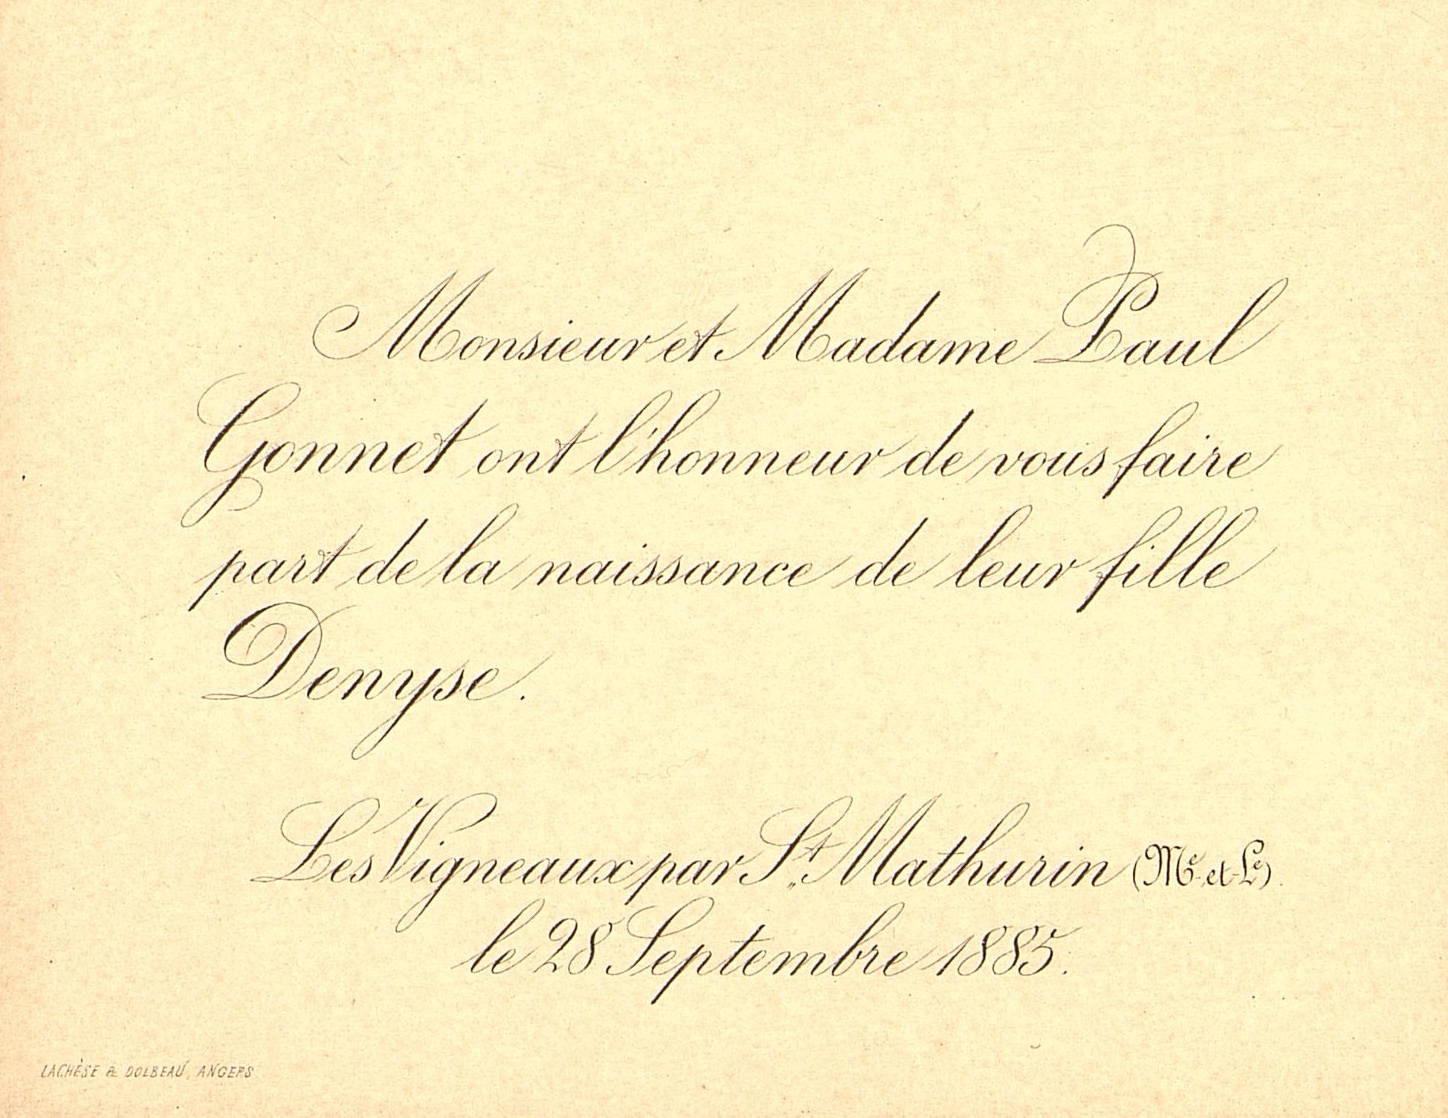 Monsieur et Madame Paul
Gonnet ont l'honneur de vous faire
part de la naissance de leur fille
Denyse.
Les Vigneaux par St Mathurin (Me et Le).
le 28 Septembre 1885.
LACHÈSE & DOLBEAU, ANGERS